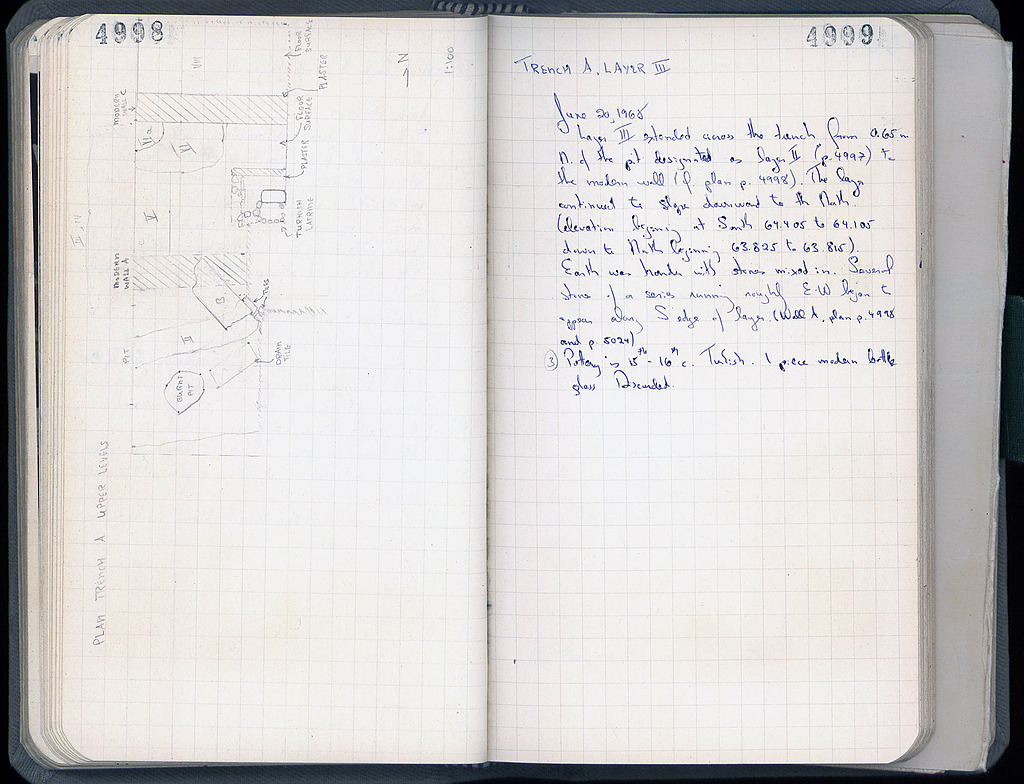 4998
PLAN TRENCH A UPPER LEVELS
N
1:100
PIT
BURNT
PIT
II
DRAIN
TILE
TILES
B.
MODERN
WALL A
V
II, IV
TURKISH
LATRINE
VI
IIIa
MODERN
WALL C
PLASTER
FLOOR
SURFACE
VII
PLASTER
FLOOR
SURFACE
4999
TRENCH A, LAYER III
June 20, 1965
Layer III extended across the trench from 0.65 m
N. of the pit designated as layer II (p. 4997) to
the modern wall (cf plan p. 4998). The layer
continued to slope downward to the North.
(elevation beginning at South 64.405 to 64.105
down to North beginning 63.825 to 63.815).
Earth was harder with stones mixed in. Several
stones of a series running roughly E-W began to
appear along S edge of layer. (Wall A, plan p. 4998
and p. 5024)
3 Pottery is 15th - 16th c. Turkish. 1 piece modern bottle
glass Discarded.